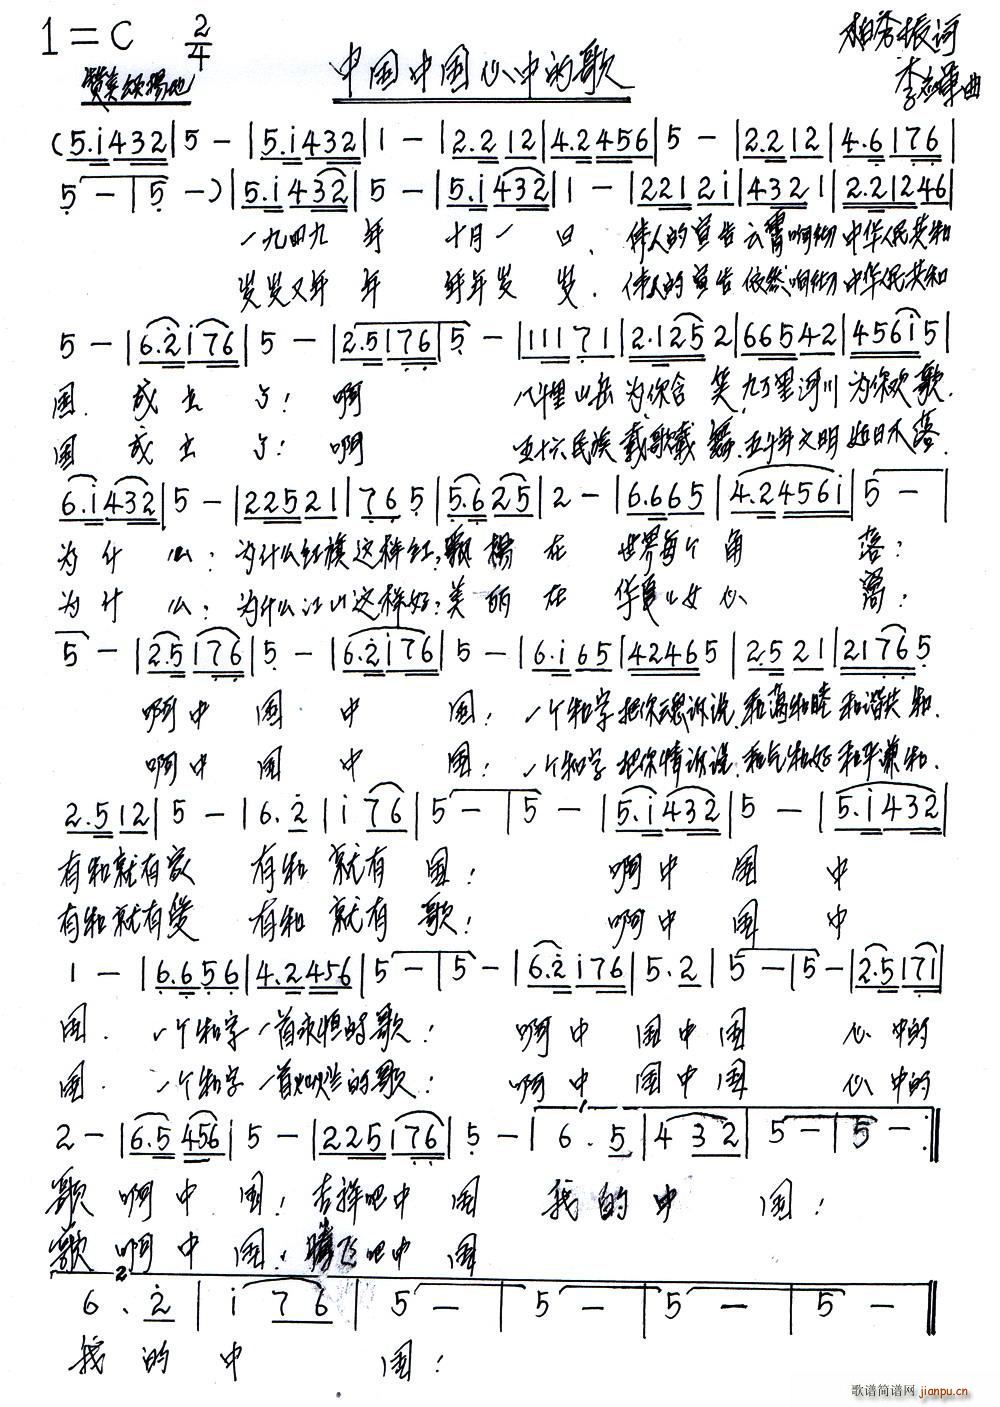 1=C 2/4
中国中国心中的歌
柏秀振词
赞美颂扬地
李志军曲
(5.i432|5 -|5.i432|1 -|2.2 12|4.2456|5 -|2.212|4.6176|
5 -|5 -)|5.i432|5 -|5.i432|1 -|2212i|4321|2.21246|
一九四九 年 十月一 日. 伟人的宣告云霄响彻中华人民共和
岁岁又年 年 年年岁 岁. 伟人的宣告依然响彻中华人民共和
5 -|6.2i76|5 -|2.5176|5 -|11171|2.1252|66542|456i5|
国. 成立 了! 啊 八千里山岳为你含 笑,九万里河川为你欢歌.
国 成立 了! 啊 五十六民族载歌载 舞.五千年文明如日不落.
6.i432|5 -|22521|765|5.625|2 -|6.665|4.2456i|5 -|
为什 么: 为什么红旗这样红,飘扬 在 世界每个 角 落?
为什 么: 为什么江山这样好,美丽 在 华夏儿女 心 窝?
5 -|2.5176|5 -|6.2i76|5 -|6.i65|42465|2.521|21765
啊中 国 中 国! 一个和字把你魂诉说.和满和睦和谐共和.
啊中 国 中 国! 一个和字把你情诉说.和气和好和平兼和.
2.512|5 -|6.2|i76|5 -|5 -|5.i432|5 -|5.i432|
有和就有家 有和 就有 国! 啊 中 国 中
有和就有爱 有和 就有 歌! 啊 中 国 中
1 -|6.656|4.2456|5 -|5 -|6.2i76|5.2|5 -|5 -|2.5171|
国. 一个和字一首永恒的歌! 啊 中 国中国 心 中的
国. 一个和字一首灿烂的歌! 啊 中 国中国 心 中的
2 -|6.5456|5 -|225i76|5 -|6.5|432|5 -|5 -:||
歌 啊中 国! 吉祥吧中 国 我的中 国!
歌 啊中 国! 腾飞吧中 国
6.2|i76|5 -|5 -|5 -|5 -||
我 的 中 国!
歌谱简谱网 jianpu.cn